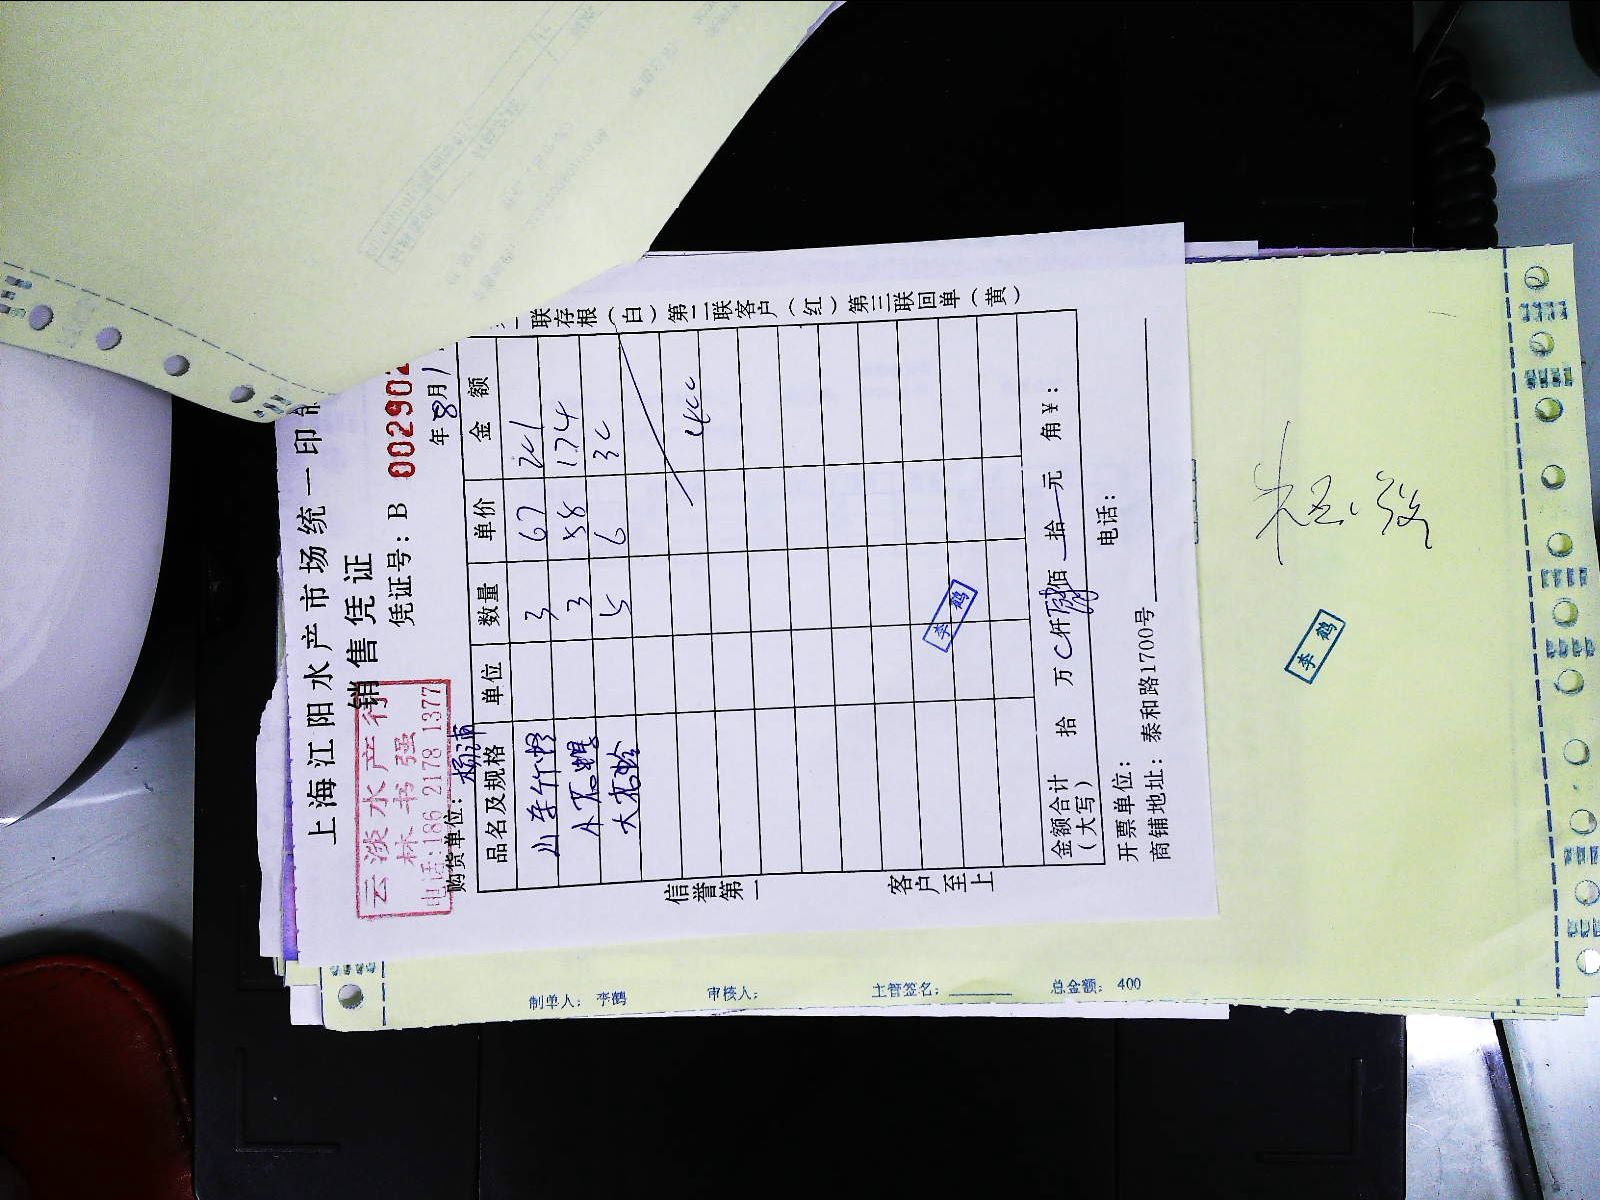 上海江阳水产市场统一印制
销售凭证
凭证号：B 002902
云淡水产行
林书强
电话:186 2178 1377
购货单位：杨浦
年8月1
品名及规格 单位 数量 单价 金额
3 67 201
3 58 174
5 6 30
400
金额合计（大写） 拾 万 仟 佰 拾 元 角 ￥：
开票单位： 电话：
商铺地址：泰和路1700号
信誉第一 客户至上
联存根（白）第二联客户（红）第三联回单（黄）
李鹤
李鹤
制单人：李鹤 审核人： 主管签名： 总金额：400